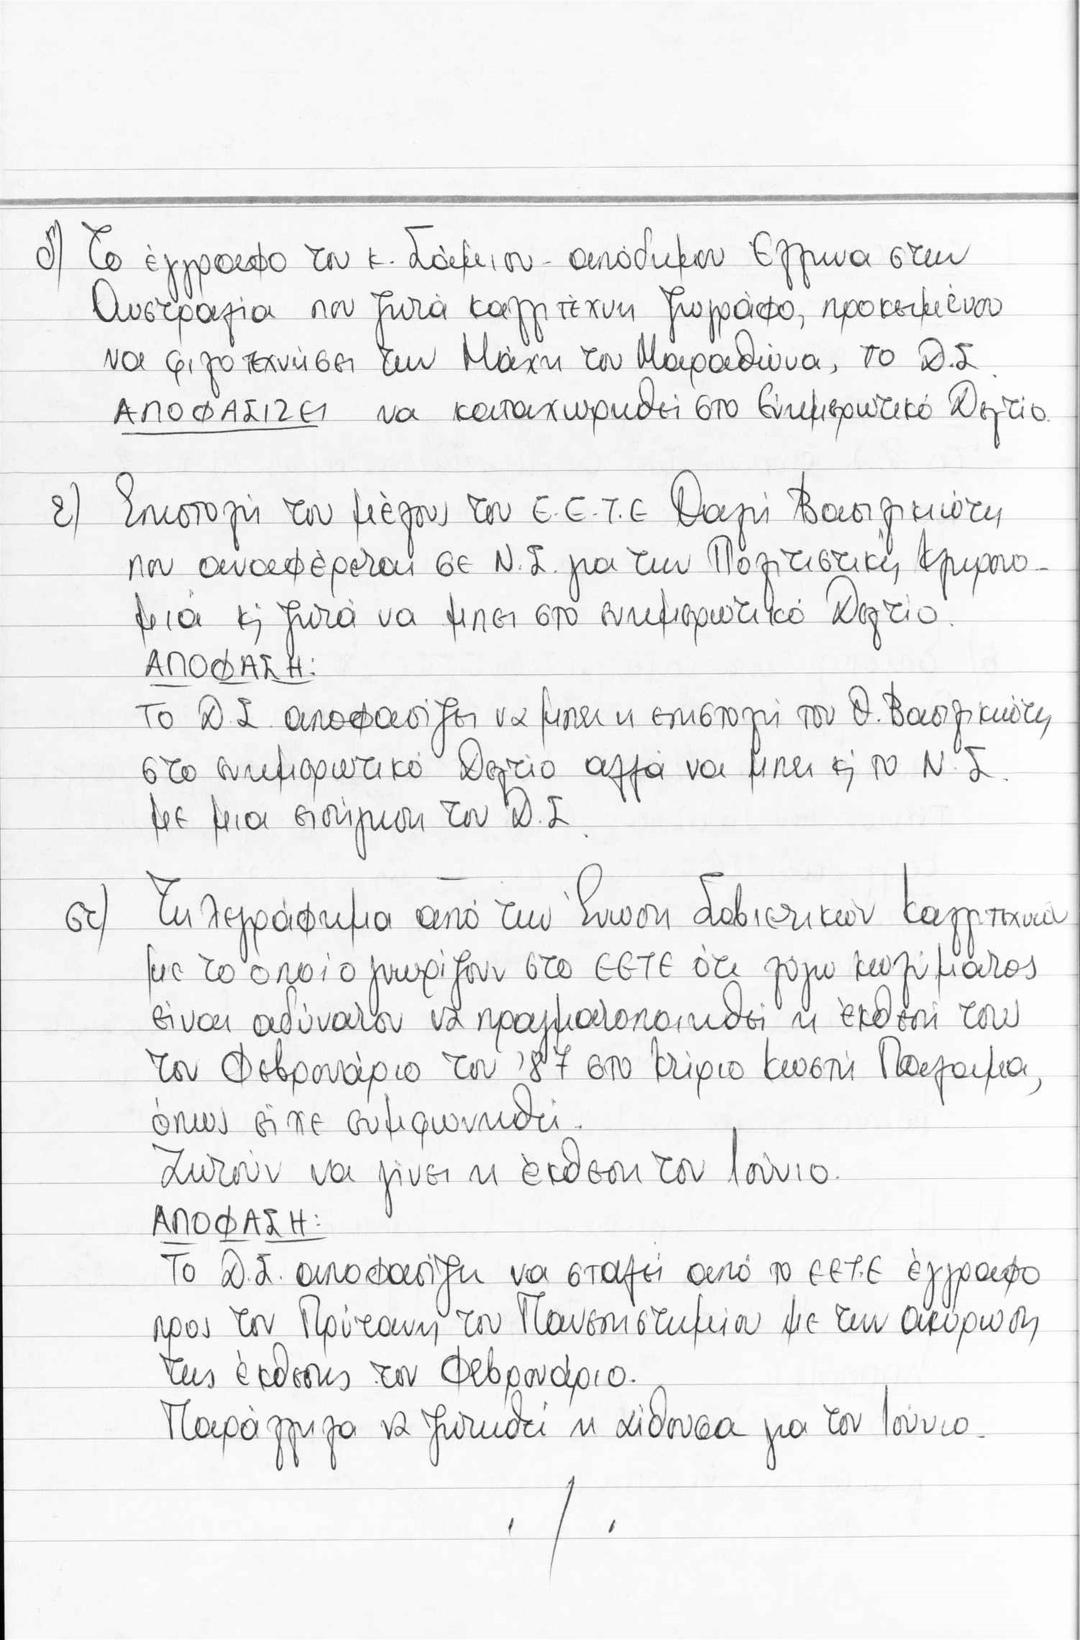 δ) Το έγγραφο του κ. Σάμιου - απόδημου Έλληνα στην
Αυστραλία που ζητά καλλιτέχνη ζωγράφο, προκειμένου
να φιλοτεχνήσει την Μάχη του Μαραθώνα, το Δ.Σ.
ΑΠΟΦΑΣΙΖΕΙ να καταχωρηθεί στο Ενημερωτικό Δελτίο.
ε) Επιστολή του μέλους του Ε.Ε.Τ.Ε Θαλή Βασιλικιώτη
που αναφέρεται σε Ν.Σ. για την Πολιτιστική Κληρονο-
μιά κ; ζητά να μπει στο ενημερωτικό Δελτίο.
ΑΠΟΦΑΣΗ:
Το Δ.Σ. αποφασίζει να μπει η επιστολή του Θ. Βασιλικιώτη
στο ενημερωτικό Δελτίο αλλά να μπει κ; το Ν.Σ.
με μια εισήγηση του Δ.Σ.
στ) Τηλεγράφημα από την Ένωση Σοβιετικών Καλλιτεχνών
με το οποίο γνωρίζουν στο ΕΕΤΕ ότι λόγω κωλύματος
είναι αδύνατον να πραγματοποιηθεί η έκθεσή τους
τον Φεβρουάριο του '87 στο Κτίριο Κωστή Παλαμά,
όπως είχε συμφωνηθεί.
Ζητούν να γίνει η έκθεση τον Ιούνιο.
ΑΠΟΦΑΣΗ:
Το Δ.Σ. αποφασίζει να σταλεί από το ΕΕΤ.Ε έγγραφο
προς τον Πρύτανη του Πανεπιστημίου με την ακύρωση
της έκθεσης τον Φεβρουάριο.
Παράλληλα να ζητηθεί η αίθουσα για τον Ιούνιο.
./.